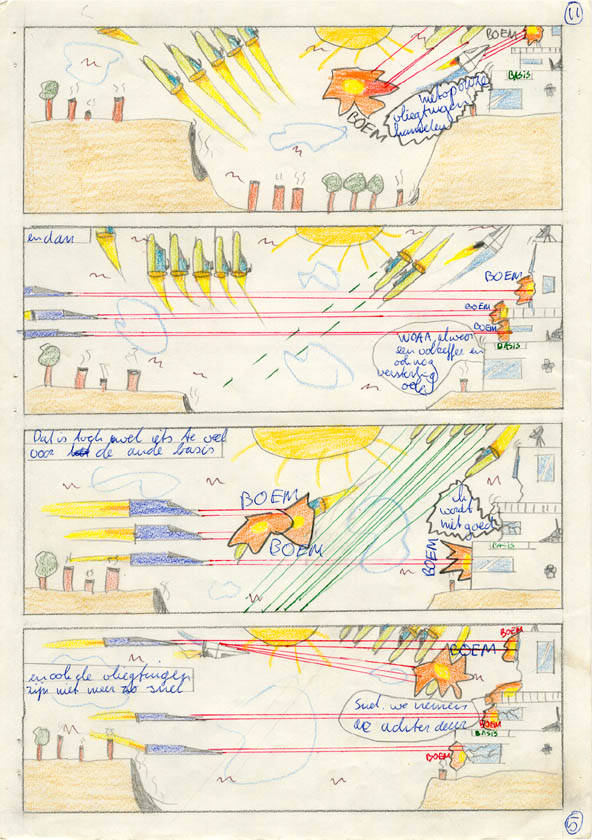 11
BOEM
BASIS
BOEM
vliegtuigen
en dan
BOEM
BOEM
BOEM
BASIS
WOAA, alweer
een voltreffer en
ook nog
versterking
Dat is toch wel iets te veel
voor de oude basis
BOEM
BOEM
ik
wordt
niet goed
BOEM
BASIS
BOEM
BOEM
en ook de vliegtuigen
zijn niet meer zo snel
Snel, we nemen
de achter deur
BOEM
BASIS
BOEM
51